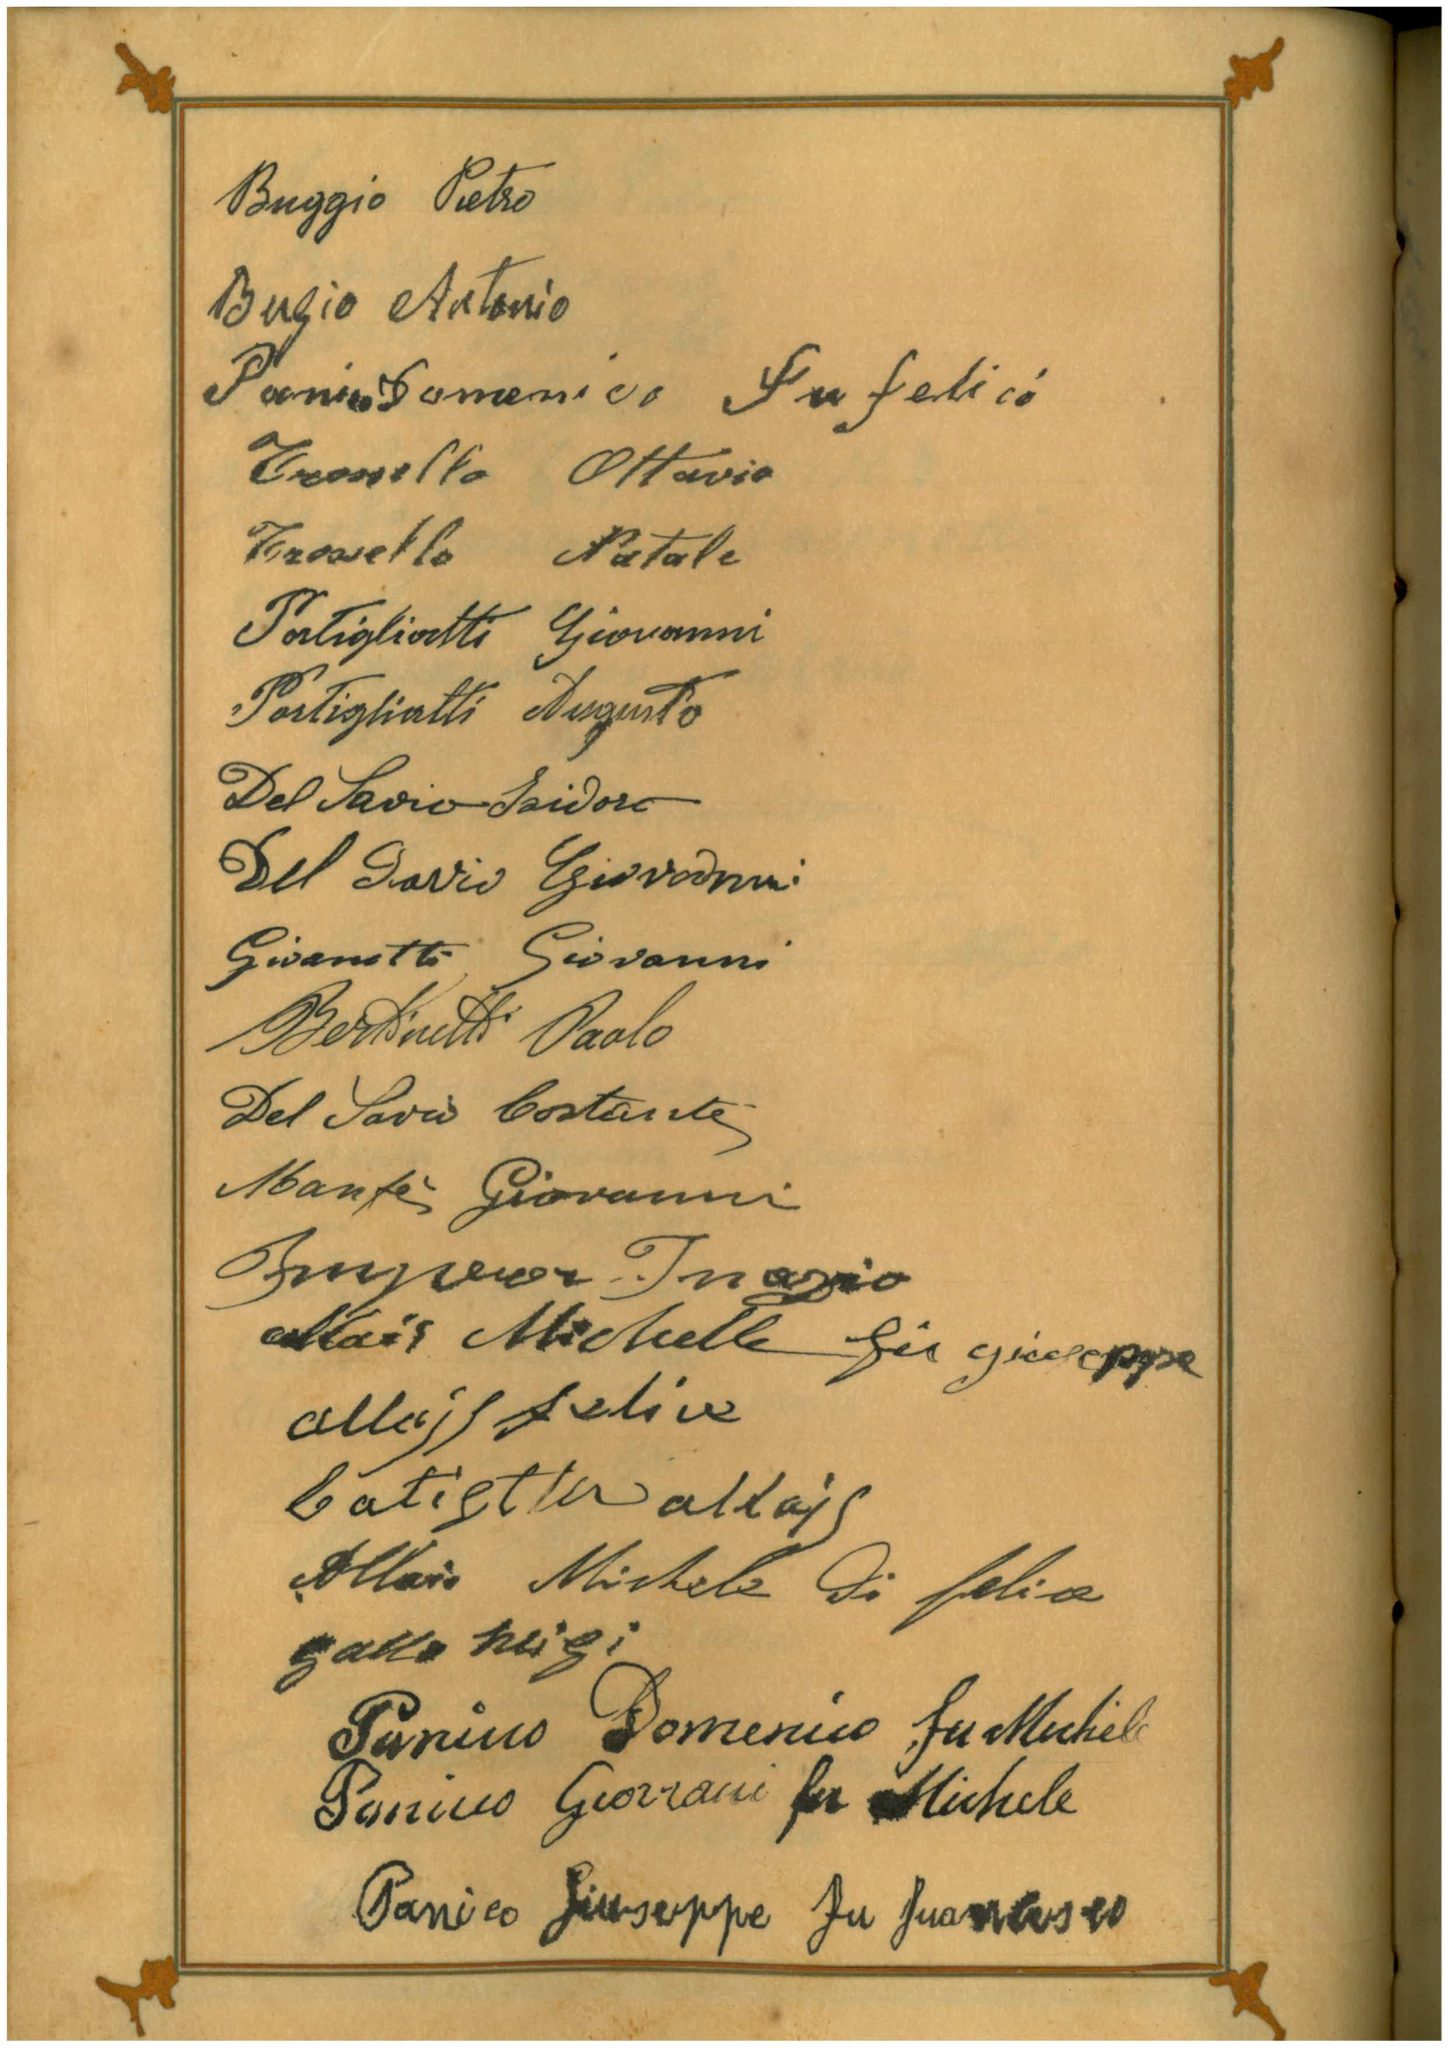 Buggio Pietro
Bugio Antonio
Panico Domenico Fu felice
Trosello Ottavio
Trosello Natale
Portigliatti Giovanni
Portigliatti Augusto
Del Savio Isidoro
Del Savio Giovanni
Givanetti Giovanni
Bertinetti Paolo
Del Savio Costante
Giovanni
Inazio
allais Michele fu giuseppe
allajs felice
batista allajs
Allais Michele di felice
gallo luigi
Panico Domenico fu Michele
Panico Giovani fu Michele
Panico Giuseppe fu